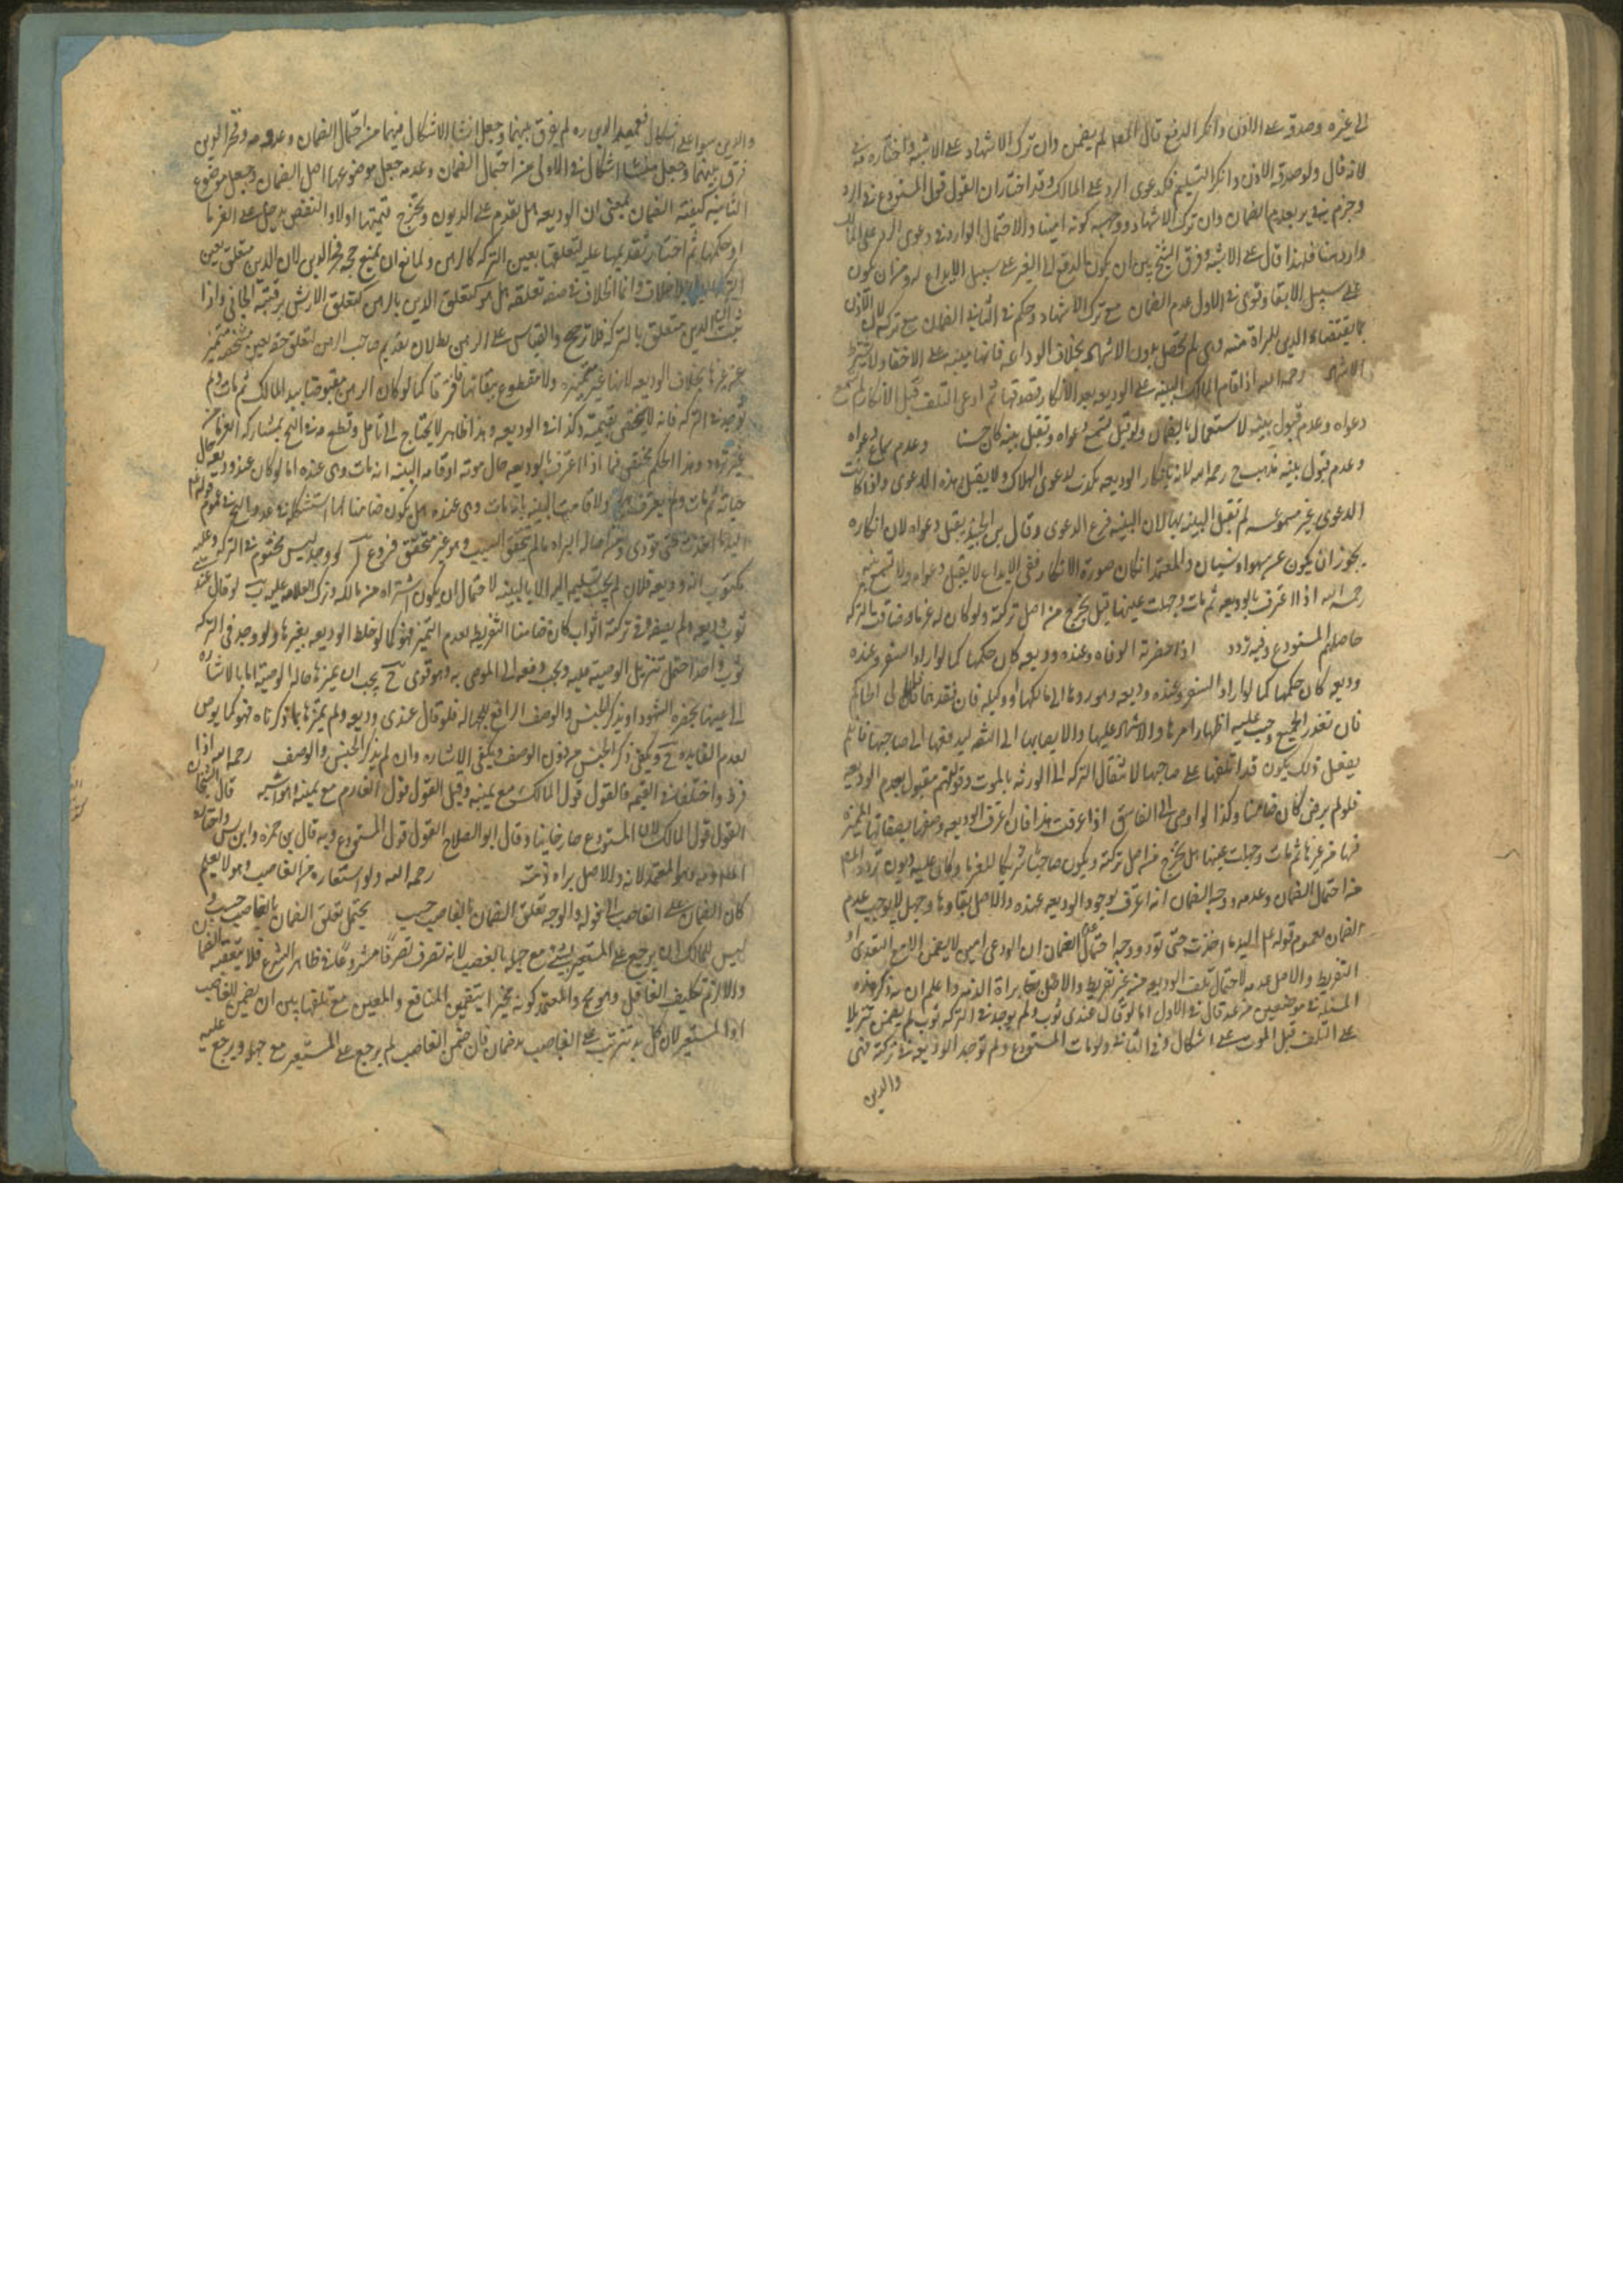 الى غيره وصدقه على الاذن وانكر الدفع قال المص لم يضمن وان ترك الاشهاد على الاشبه واختاره في
لانه قال ولو صدقه الاذن وانكر التسليم فكدعوى الرد على المالك وقد اختار ان القول قول المستودع في الرد
وجزم بعدم الضمان وان ترك الاشهاد ووجهه كونه امينا والاحتمال الوارد في دعوى الرد على المالك
وارد هنا فلهذا قال على الاشبه وفرق الشيخ بين ان يكون الدفع الى الغير على سبيل الايداع له وبين ان يكون
على سبيل الايفا وقوى في الاول عدم الضمان مع ترك الاشهاد وحكم في الثاني الضمان مع تركه لان الاذن
بقضاء الدين للبراة منه وهي لم تحصل بدون الاشهاد بخلاف الوداعه فانها مبنيه على الاخفا ولا
الاشهاد رحمه الله اذا اقام المالك البينه على الوديعه بعد الانكار فصدقها ثم ادعى التلف قبل الانكار لم تسمع
دعواه وعدم قبول بينته لاستعمال بالضمان ولو قيل تسمع دعواه وتقبل بينته كان حسنا وعدم سماع دعواه
وعدم قبول بينه مذهب رحمه الله لانه بانكار الوديعه مكذب لدعوى الهلاك ولا يقبل بهذه الدعوى واذا كانت
الدعوى غير مسموعه لم تقبل البينه بها لان البينه فرع الدعوى وقال بن الجنيد يقبل دعواه لان انكاره
يجوز ان يكون عن سهو او نسيان والمعتمد ان كان صورة الانكار نفى الايداع لا يقبل دعواه ولا تسمع بينته
رحمه الله اذا اعترف بالوديعه ثم مات وجهلت عينها قيل يخرج من اصل تركته ولو كان له غرما وضاقت التركه
حاصهم المستودع وفيه تردد اذا حضرته الوفاه وعنده وديعه كان حكمها كما لو اراد السفر وعنده
وديعه كان حكمها كما لو اراد السفر وعنده وديعه وهو ردها الى مالكها او وكيله فان فقدهما الى الحاكم
فان تعذر الجميع وجب عليه اظهار امرها والاشهاد عليها والايصا بها الى الثقه ليدفعها الى صاحبها فان لم
يفعل ذلك يكون قد اتلفها على صاحبها لانتقال التركه الى الورثه بالموت وقولهم مقبول بعدم الوديعه
فلو لم يوص كان ضامنا وكذا لو اوصى الى الفاسق اذا عرفت هذا فان اعترف بالوديعه وصفها بصفاتها المميزه
لها عن غيرها ثم مات وجهلت عينها هل يخرج من اصل تركته ويكون صاحبها شريكا للغرما لو كان عليه ديون تردد المص
منه احتمال الضمان وعدمه ووجه الضمان انه اعترف بوجود الوديعه عنده والاصل بقاوها وجهل لا يوجب عدم
الضمان لعموم قوله ع م اليد ما اخذت حتى تؤد ووجه احتمال عدم الضمان ان الودعي امين لا يضمن الا مع التعدي او
التفريط والاصل عدمه لاحتمال تلف الوديعه من غير تفريط والاصل براة الذمه واعلم ان ذكر هذه
المسئله في موضعين من عد قال في الاول اما لو قال عندي ثوب ولم يوجد في التركه ثوب لم يضمن تنزيلا
على التلف قبل الموت على اشكال وفي الثاني ولو مات المستودع ولم توجد الوديعه في تركته فهي
والدين
والدين سوا على اشكال فعميد الدين ره لم يفرق بينهما وجعل منشا الاشكال فيهما من احتمال الضمان وعدمه وفخر الدين
فرق بينهما وجعل منشا اشكال في الاولى من احتمال الضمان وعدمه جعل موضوعها اصل الضمان وجعل موضوع
الثانيه كيفية الضمان بمعنى ان الوديعه هل يقدم على الديون ويخرج قيمتها اولا والنقص يدخل على الغرما
او حكمها ثم اختار تقديمها عليه لتعلقها بعين التركه كالرهن ولمانع ان يمنع حجه فخر الدين لان الدين متعلق بعين
التركه بلا خلاف وانما الخلاف في صفة تعلقه هل هو كتعلق الدين بالرهن كتعلق الارش برقبة الجاني واذا
ثبت ان الدين متعلق بالتركه فلا ترجيح والقياس على الرهن بطلان تقديم صاحب الرهن لتعلق حقه بعين مشخصه متميزه
عن غيرها بخلاف الوديعه لانها غير متميزه ولا مقطوع ببقائها فافترقا كما لو كان الرهن مقبوضا بيد المالك ثم مات ولم
توجد في التركه فانه لا يختص بقيمته وكذا في الوديعه وهذا ظاهر لا يحتاج الى تامل وقطع به في التحرير بمشاركه الغرما من
غير تردد وهذا الحكم يختص فيما اذا اعترف بالوديعه حال موته او قامه البينه انه مات وهي عنده اما لو كان عنده وديعه حال
حياته ثم مات ولم يعترف بها ولا قامت البينه بانه مات وهي عنده هل يكون ضامنا لها استشكله في عد والتحرير من عموم قوله
اليد ما اخذت حتى تؤدي ومن اصاله البراه ما لم يتحقق السبب وهو غير متحقق فروع آ لو وجد كيس مختوم في التركه وعليه
مكتوب انه وديعه فلان لم يجب تسليمه اليه الا بالبينه لاحتمال ان يكون اشتراه من مالكه وترك العلامه عليه ب لو قال عندي
ثوب وديعه ولم يصفه وفي تركته اثواب كان ضامنا لتفريط بعدم التميز فهو كما لو خلط الوديعه بغيرها ولو وجد في التركه
ثوب واحد احتمل تنزيل الوصية عليه ويجب دفعه الى الموصى به وهو قوى ج يجب ان يميزها حاله الوصيه اما بالاشاره
الى عينها بحضره الشهود او بذكر الجنس والوصف الرافع للجهاله فلو قال عندي وديعه ولم يميزها بما ذكرناه فهو كما لو يوص
لعدم الفايده ويكفي ذكر الجنس من دون الوصف ويكفي الاشاره وان لم يذكر الجنس والوصف رحمه الله اذا
فرط واختلفا في القيمه فالقول قول المالك مع يمينه وقيل القول قول الغارم مع يمينه وهو اشبه قال الشيخان
القول قول المالك لان المستودع صار خاينا وقال ابو الصلاح القول قول المستودع وبه قال بن حمزه وابن ادريس واختاره
العلامه وهو المعتمد لانه والاصل براه ذمته رحمه الله ولو استعاره من الغاصب وهو لا يعلم
كان الضمان على الغاصب الى قوله والوجه تعلق الضمان بالغاصب حسب يحتمل تعلق الضمان بالغاصب حسب و
ليس للمالك ان يرجع على المستعير بشي مع جهله بالغصب لانه تصرف تصرفا مشروعا في ظاهر الشرع فلا يتعقبه الضمان
والا لزم تكليف الغافل وهو قبيح والمعتمد كونه مخيرا بتضمين المنافع والعين مع تلفها بين ان يضمن الغاصب
او المستعير لان كل يد تترتب على الغاصب يد ضمان فان ضمن الغاصب لم يرجع على المستعير مع جهله ويرجع عليه